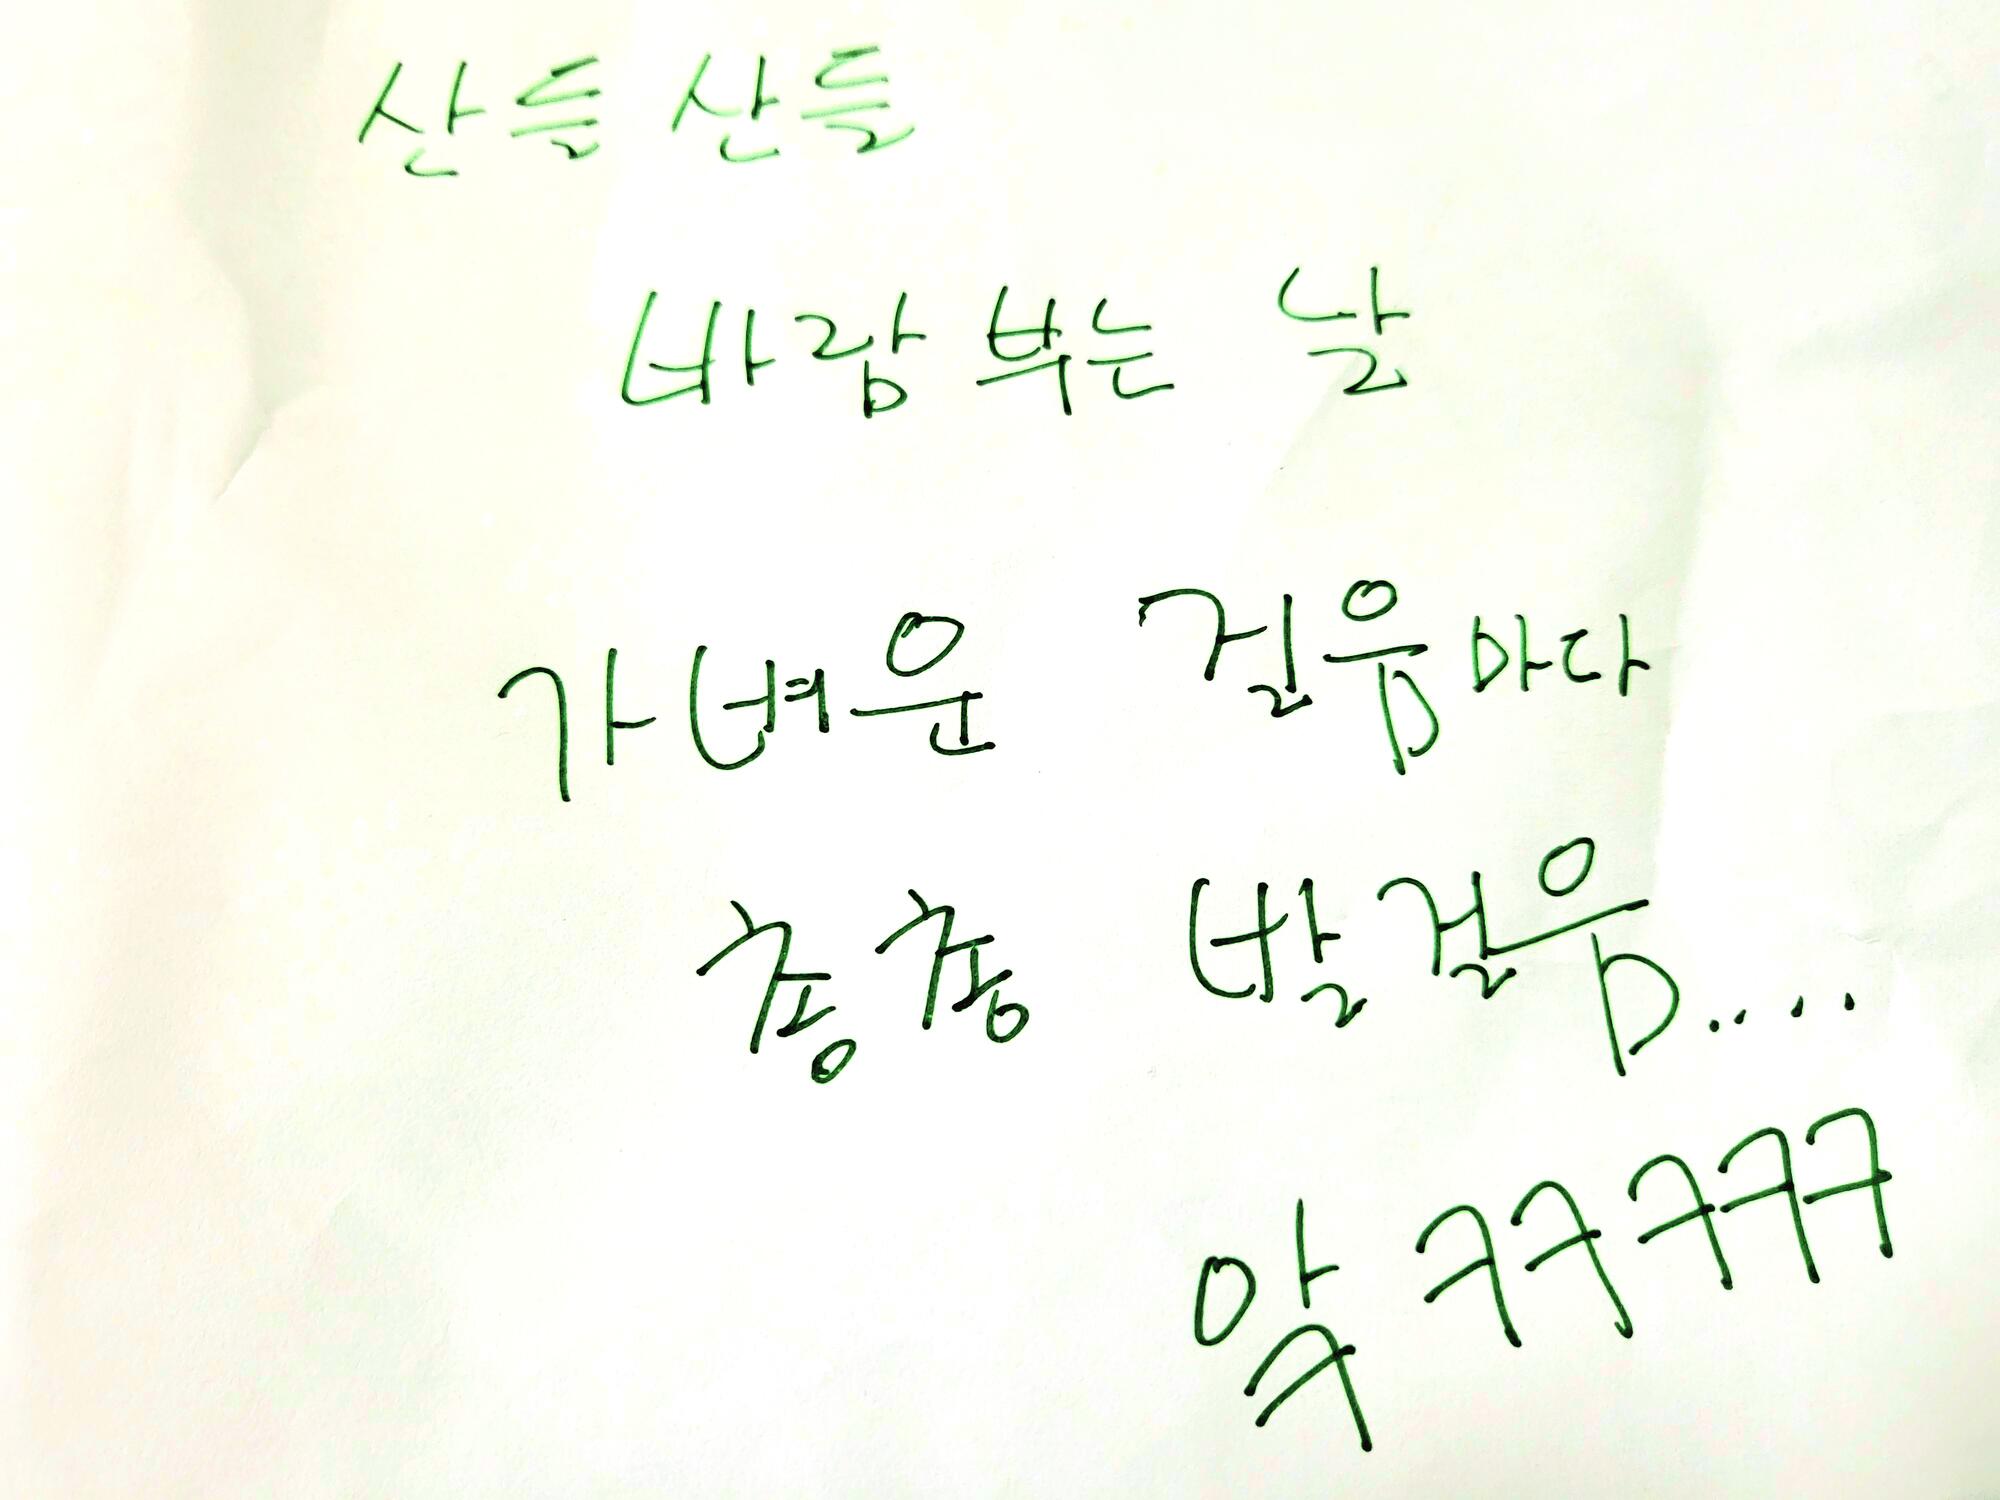 산들 산들
바람 부는 날
가벼운 걸음마다
총총 발걸음....
앜 ㅋㅋㅋㅋㅋ